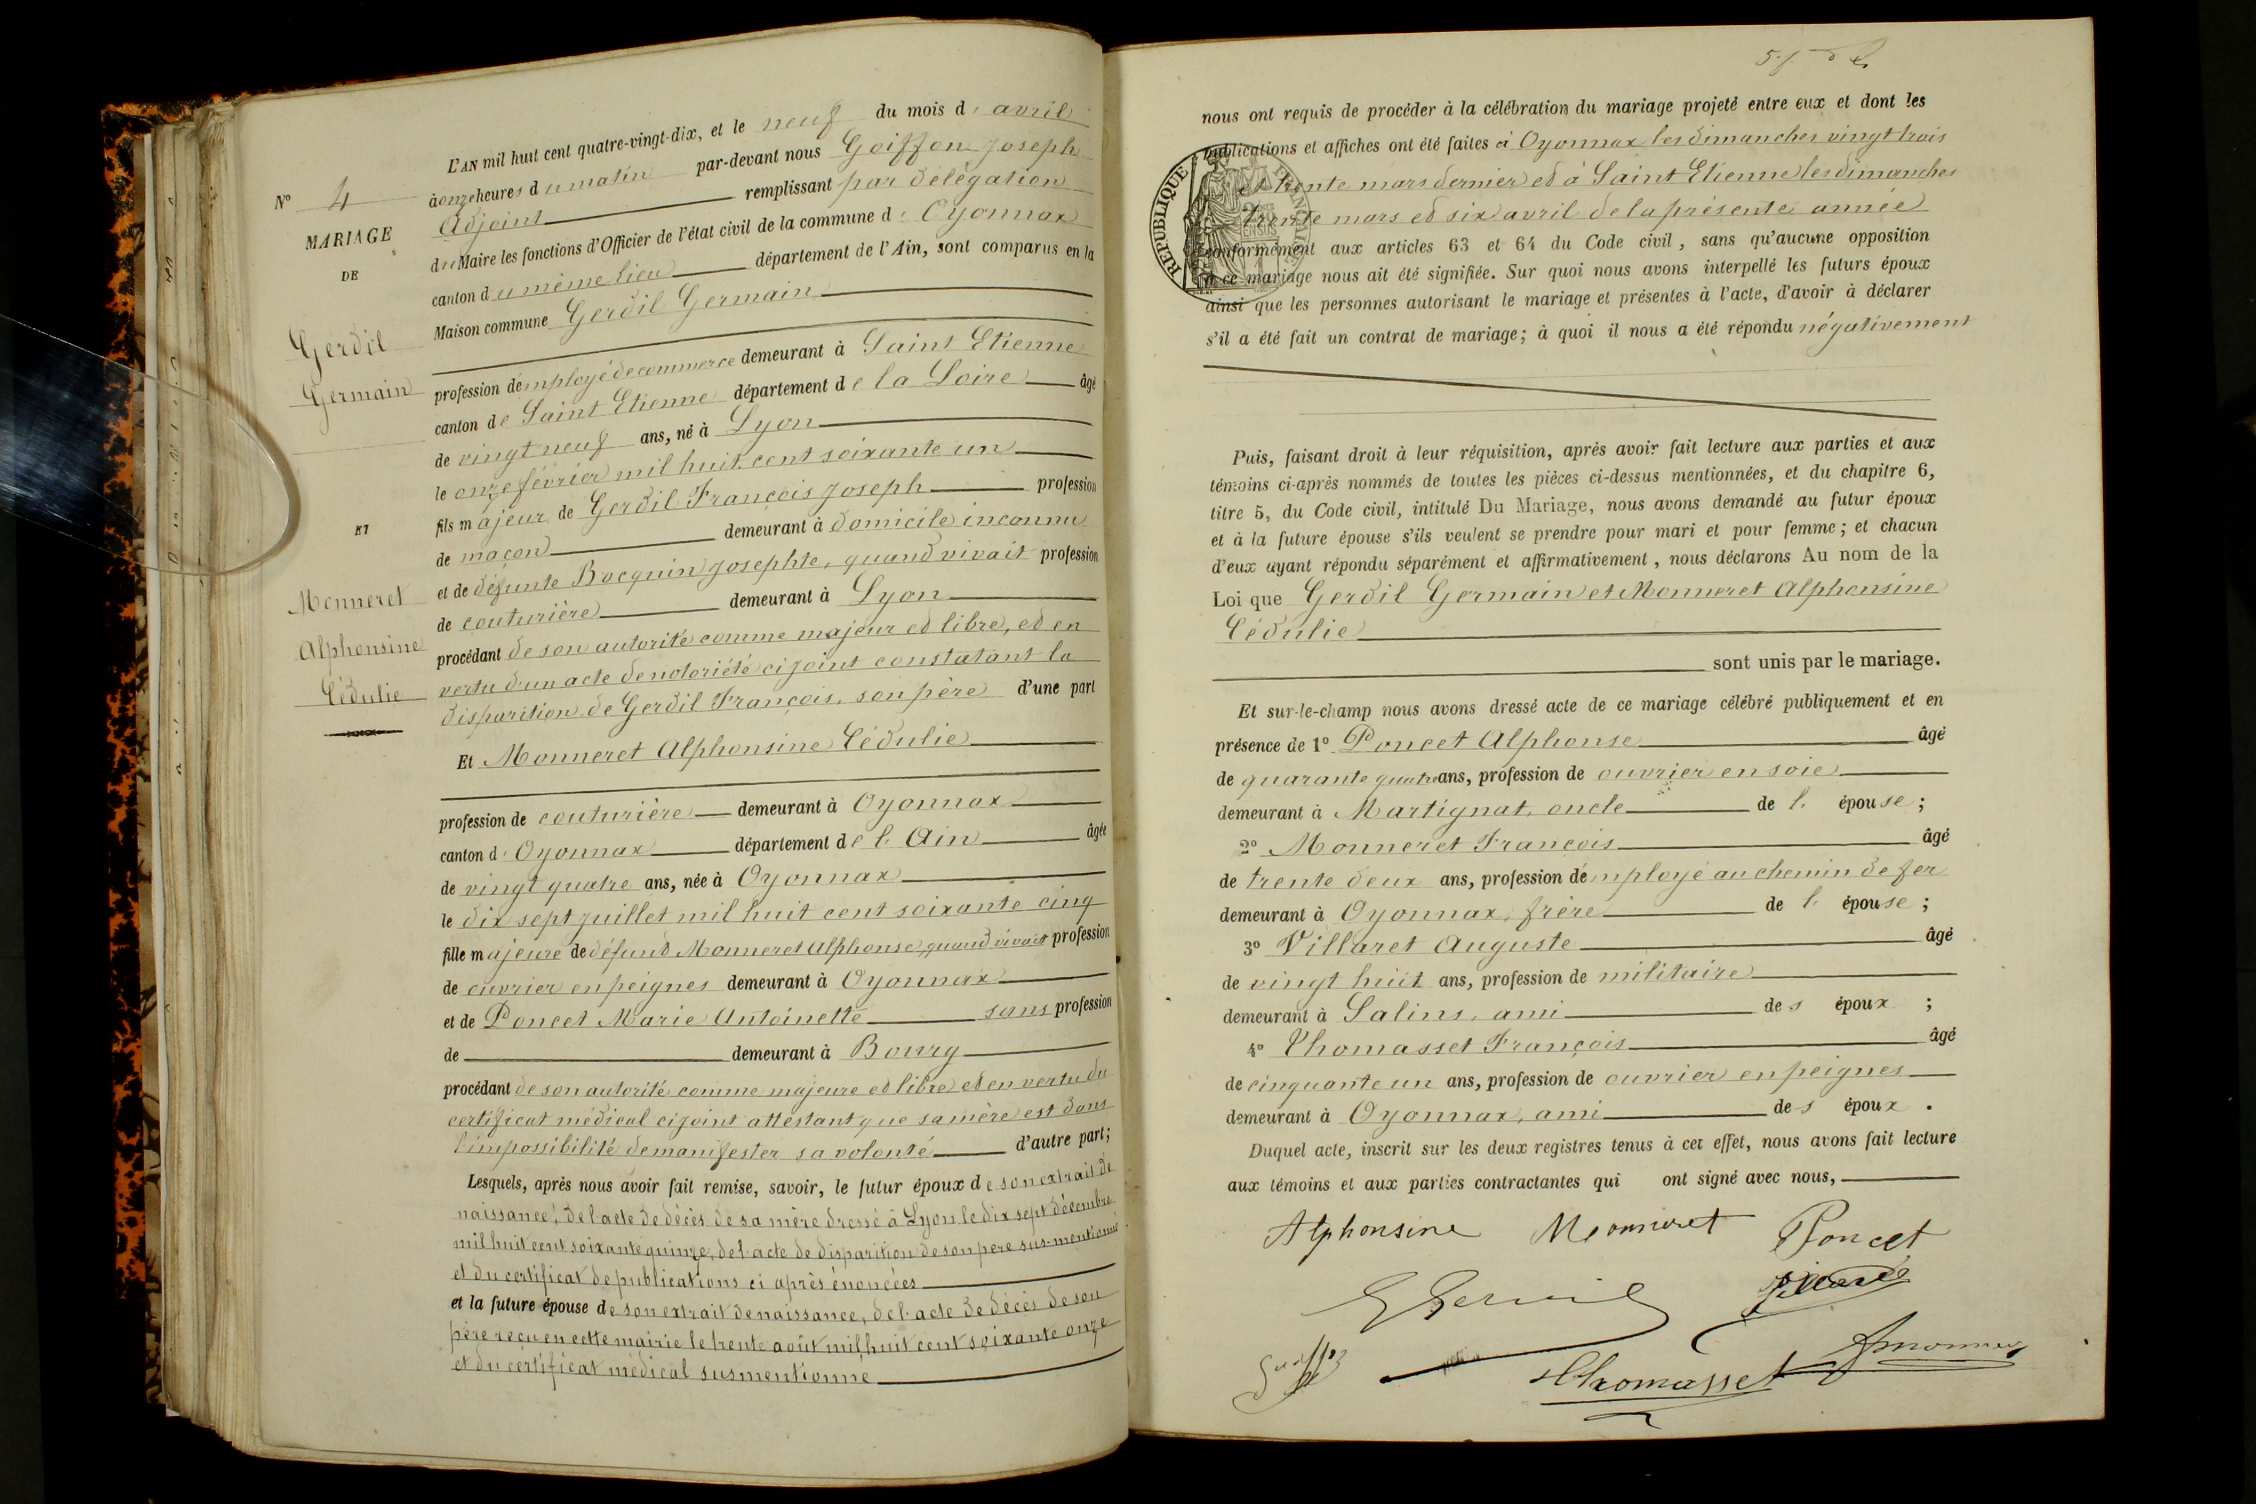 N° 4
MARIAGE
DE
Gerdil
Germain
ET
Monneret
Alphonsine
Cédulie
L'AN mil huit cent quatre-vingt-dix, et le neuf du mois d'avril
à onze heures du matin par-devant nous Goiffon Joseph
Adjoint remplissant par délégation
du Maire les fonctions d'Officier de l'état civil de la commune d'Oyonnax
canton du même lieu département de l'Ain, sont comparus en la
Maison commune Gerdil Germain
profession d'employé de commerce demeurant à Saint Etienne
canton de Saint Etienne département de la Loire âgé
de vingt neuf ans, né à Lyon
le onze février mil huit cent soixante un
fils majeur de Gerdil François Joseph profession
de maçon demeurant à domicile inconnu
et de défunte Bocquin Josephte, quand vivait profession
de couturière demeurant à Lyon
procédant de son autorité comme majeur et libre, et en
vertu d'un acte de notoriété ci joint constatant la
disparition de Gerdil François, son père d'une part
Et Monneret Alphonsine Cédulie
profession de couturière demeurant à Oyonnax
canton d'Oyonnax département de l'Ain âgée
de vingt quatre ans, née à Oyonnax
le dix sept juillet mil huit cent soixante cinq
fille majeure de défund Monneret Alphonse, quand vivait profession
de ouvrier en peignes demeurant à Oyonnax
et de Poncet Marie Antoinette sans profession
de demeurant à Bourg
procédant de son autorité comme majeure et libre et en vertu du
certificat médical ci joint attestant que sa mère est dans
l'impossibilité de manifester sa volonté d'autre part;
Lesquels, après nous avoir fait remise, savoir, le futur époux de son extrait de
naissance, de l'acte de décès de sa mère dressé à Lyon le dix sept décembre
mil huit cent soixante quinze, de l'acte de disparition de son père sus-mentionné
et du certificat de publications ci après énoncées
et la future épouse de son extrait de naissance, de l'acte de décès de son
père reçu en cette mairie le trente août mil huit cent soixante onze
et du certificat médical susmentionné
nous ont requis de procéder à la célébration du mariage projeté entre eux et dont les
publications et affiches ont été faites à Oyonnax les dimanches vingt trois
et trente mars dernier et à Saint Etienne les dimanches
trente mars et six avril de la présente année
conformément aux articles 63 et 64 du Code civil, sans qu'aucune opposition
à ce mariage nous ait été signifiée. Sur quoi nous avons interpellé les futurs époux
ainsi que les personnes autorisant le mariage et présentes à l'acte, d'avoir à déclarer
s'il a été fait un contrat de mariage; à quoi il nous a été répondu négativement
RÉPUBLIQUE FRANÇAISE
Puis, faisant droit à leur réquisition, après avoir fait lecture aux parties et aux
témoins ci-après nommés de toutes les pièces ci-dessus mentionnées, et du chapitre 6,
titre 5, du Code civil, intitulé Du Mariage, nous avons demandé au futur époux
et à la future épouse s'ils veulent se prendre pour mari et pour femme; et chacun
d'eux ayant répondu séparément et affirmativement, nous déclarons Au nom de la
Loi que Gerdil Germain et Monneret Alphonsine
Cédulie
sont unis par le mariage.
Et sur-le-champ nous avons dressé acte de ce mariage célébré publiquement et en
présence de 1° Poncet Alphonse âgé
de quarante quatre ans, profession de ouvrier en soie
demeurant à Martignat, oncle de l'épouse;
2° Monneret François âgé
de trente deux ans, profession d'employé au chemin de fer
demeurant à Oyonnax, frère de l'épouse;
3° Villaret Auguste âgé
de vingt huit ans, profession de militaire
demeurant à Salins, ami des époux;
4° Thomasset François âgé
de cinquante un ans, profession de ouvrier en peignes
demeurant à Oyonnax, ami des époux.
Duquel acte, inscrit sur les deux registres tenus à cet effet, nous avons fait lecture
aux témoins et aux parties contractantes qui ont signé avec nous,
Alphonsine Monneret Poncet
G Gerdil
Thomasset